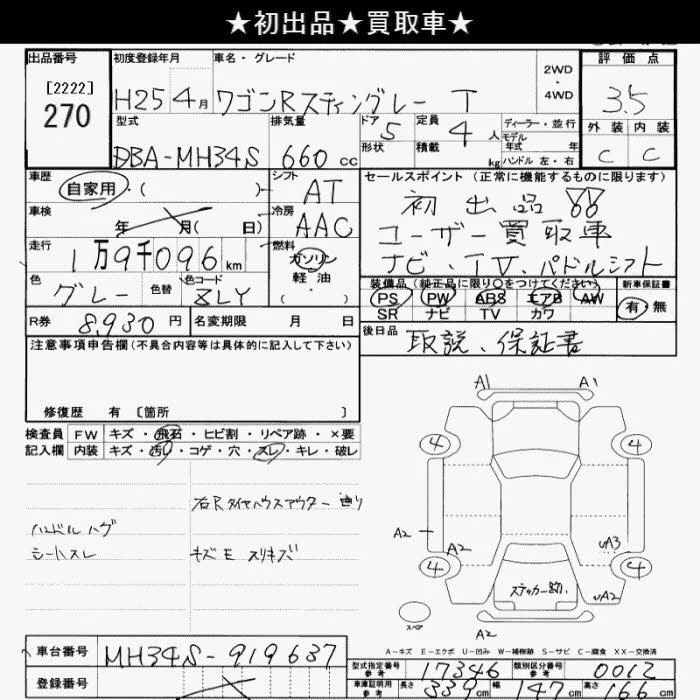 ★初出品★買取車★
出品番号 初度登録年月 車名・グレード 2WD・4WD 評価点
[2222]
270
H25 4月 ワゴンRスティングレー T 3.5
型式 排気量 ドア 5 形状 定員 4人 積載 kg ディーラー・並行 モデル年式 年式 ハンドル 左・右 外装 内装
DBA-MH34S 660cc C C
車歴 自家用・( ) シフト AT
車検 年 月( 日) 冷房 AAC
走行 1万9千096km 燃料 ガソリン 軽油 ( )
色 グレー 色替 色コード ZLY
R券 8,930円 名変期限 月 日
セールスポイント (正常に機能するものに限ります)
初出品!!
ユーザー買取車
ナビ、TV、パドルシフト
装備品 (純正品に限り○をつけてください) 新車保証書
PS PW ABS エアB AW 有・無
SR ナビ TV カワ
後日品 取説、保証書
注意事項申告欄 (不具合内容等は具体的に記入して下さい)
修復歴 有 〔箇所 〕
検査員 FW キズ・飛石・ヒビ割・リペア跡・×要
記入欄 内装 キズ・汚り・コゲ・穴・スレ・キレ・破レ
右Rタイヤハウスアウター
ハンドルハゲ
シートスレ
キズE スリキズ
A1 A1
4 4
A2 A2 uA3
4 4
ステッカー跡 uA2
スペア
A2
A-キズ E-エクボ U-凹み W-補修跡 S-サビ C-腐食 XX-交換済
車台番号 MH34S-919637
登録番号
型式指定番号 参考 17346 類別区分番号 参考 0012
車庫証明用 参考 長さ 339cm 幅 147cm 高さ 166cm